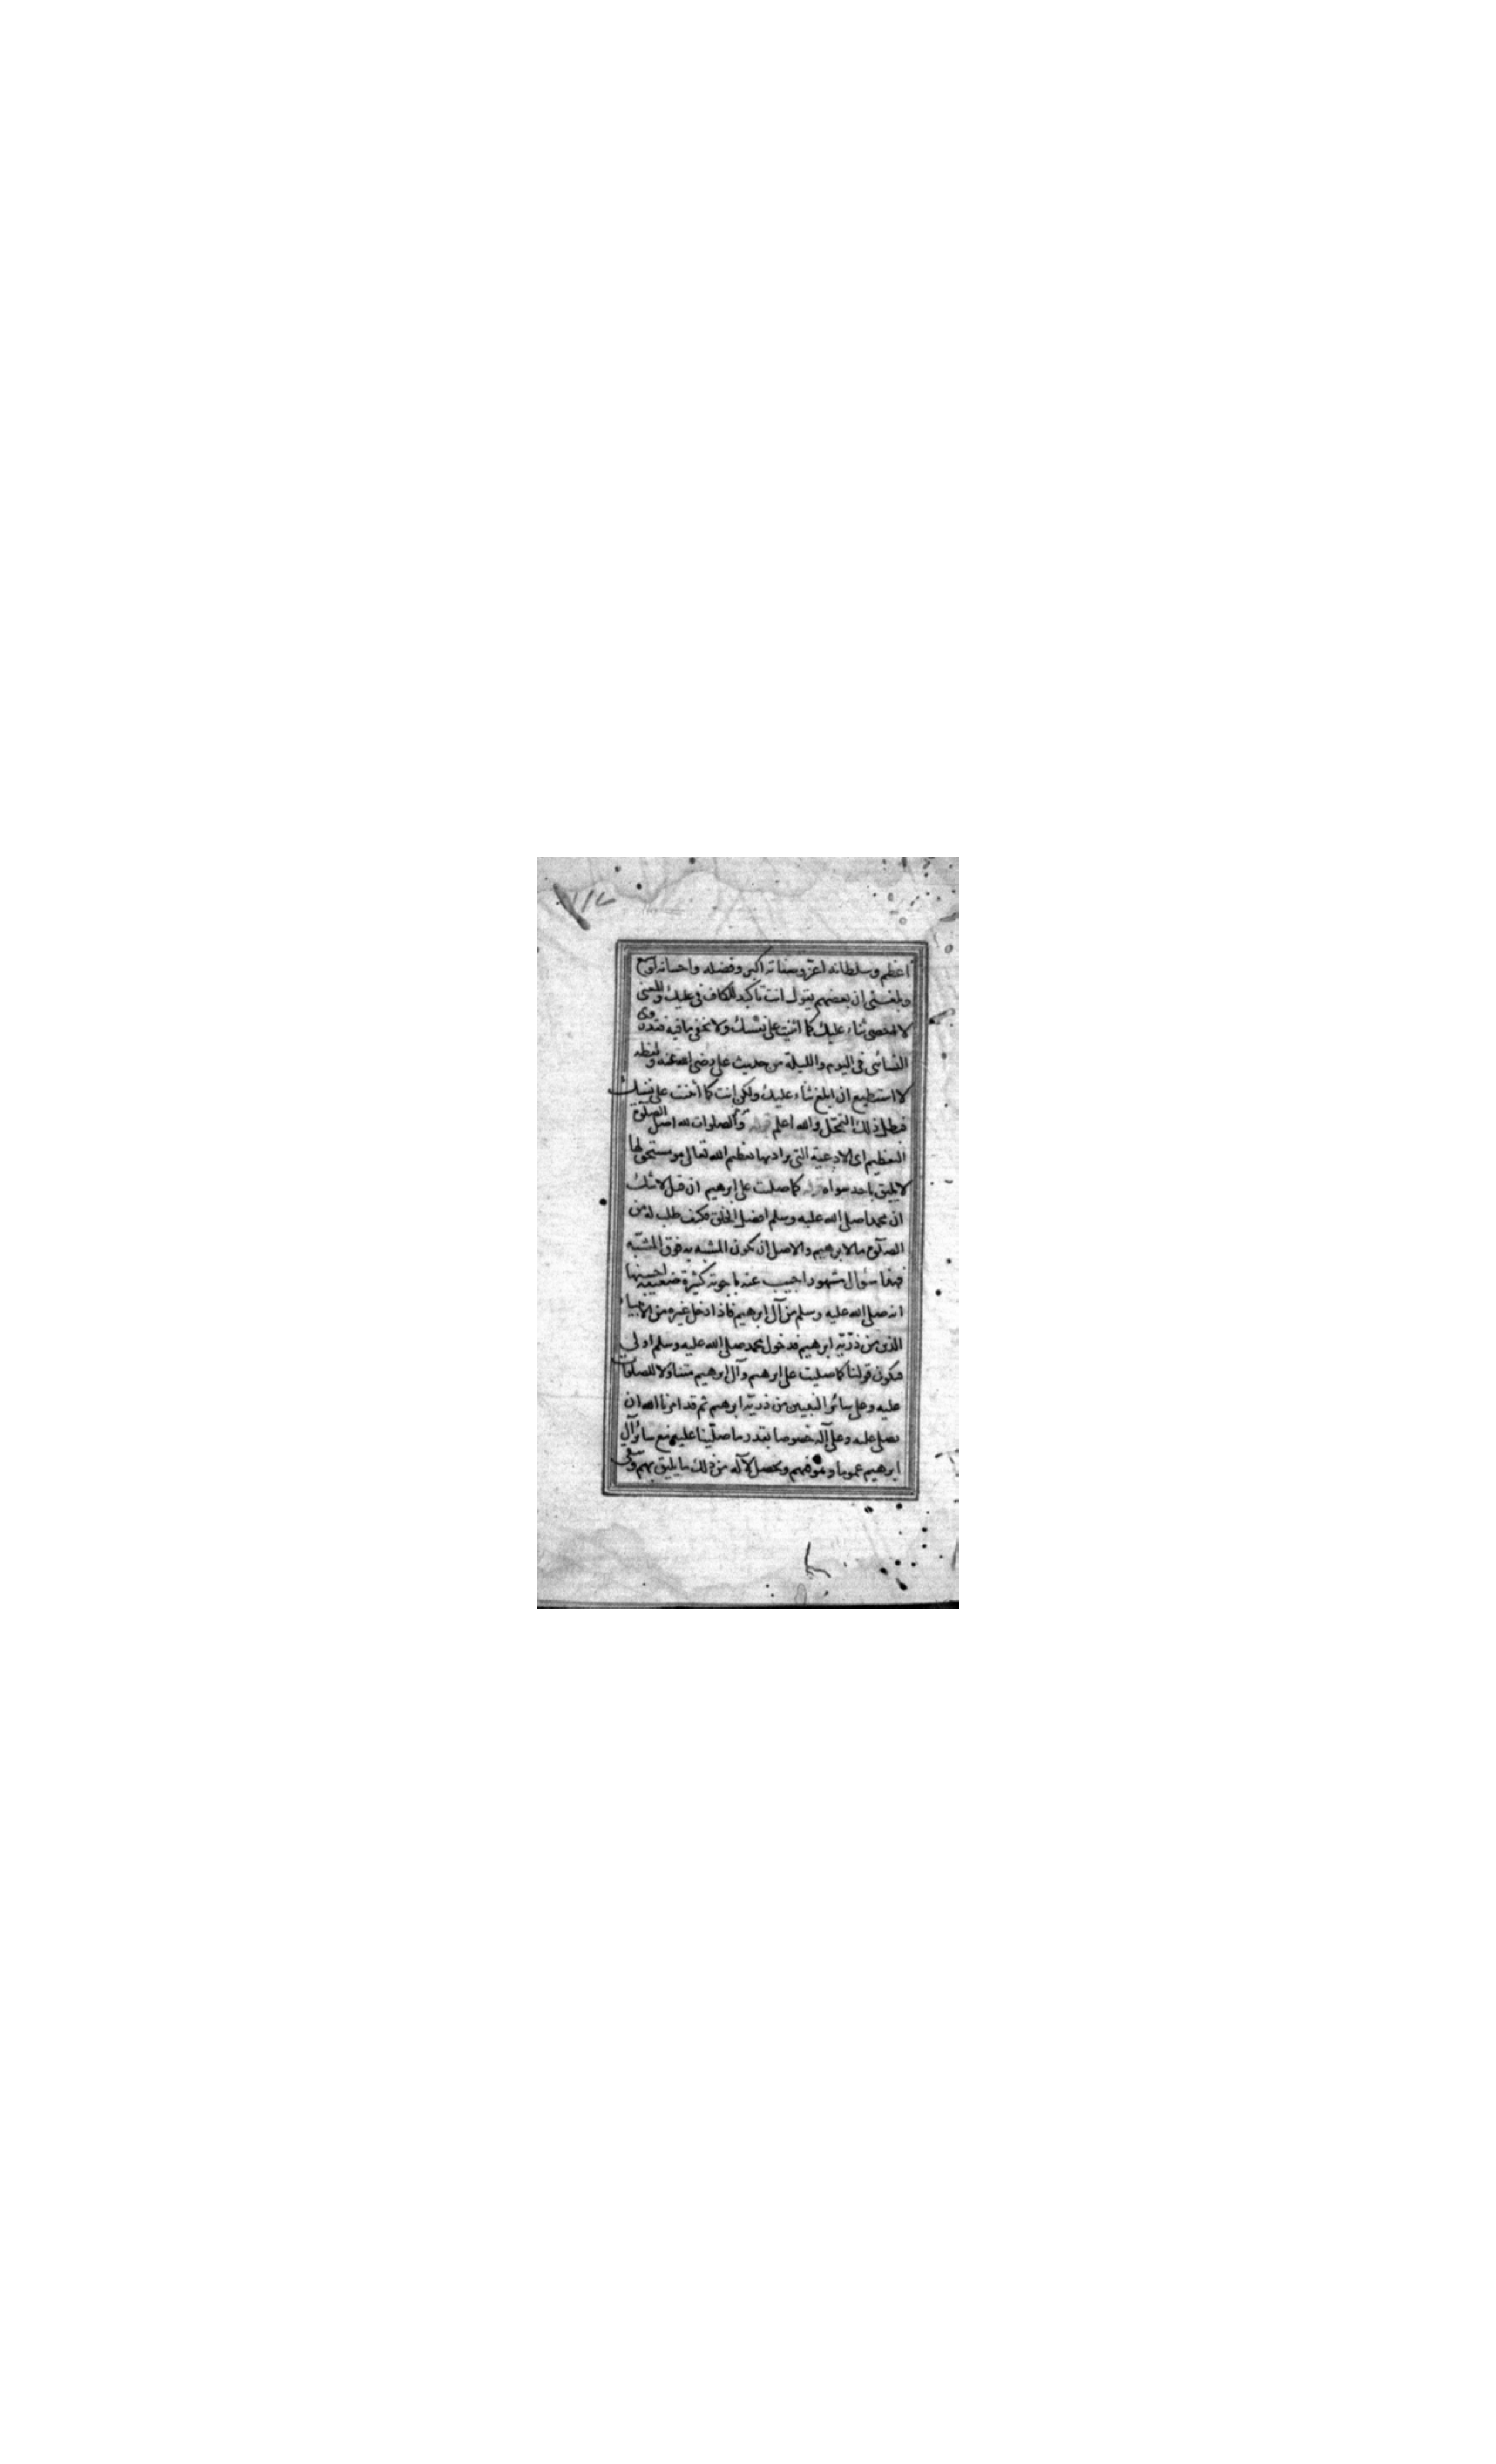 ١١٧
اعظم وسلطانه اعز وصفاته اكبر وفضله واحسانه اوسع
وبلغني ان بعضهم يقول انت تأكيد للكاف في عليك والمعنى
لا احصى ثناء عليك كما اثنيت على نفسك ولا يخفى ما فيه فقد روى
النسائى فى اليوم والليلة من حديث على رضى الله عنه ولفظه
لا استطيع ان ابلغ ثناء عليك ولكن انت كما اثنيت على نفسك
فبطل ذلك التمحّل والله اعلم قوله والصلوات لله اصل الصلوة
التعظيم اى الادعية التى يراد بها تعظيم الله تعالى هو مستحق لها
لا يليق باحد سواه قوله كما صليت على ابرهيم ان قيل لا شك
ان محمدا صلى الله عليه وسلم افضل الخلق فكيف طلب له من
الصلوة ما لابرهيم والاصل ان يكون المشبه به فوق المشبه
فهذا سؤال مشهور اجيب عنه باجوبة كثيرة ضعيفة احسنها
انه صلى الله عليه وسلم من آل ابرهيم فاذا دخل غيره من الانبياء
الذين من ذرّيّة ابرهيم فدخول محمد صلى الله عليه وسلم اولى
فيكون قولنا كما صليت على ابرهيم وآل ابرهيم متناولا للصلوات
عليه وعلى سائر النبيين من ذرية ابرهيم ثم قد امرنا الله ان
نصلى عليه وعلى آله خصوصا بقدر ما صلّينا عليهم مع سائر آل
ابرهيم عموما وهو فيهم ويحصل لآله من ذلك ما يليق بهم ويبقى